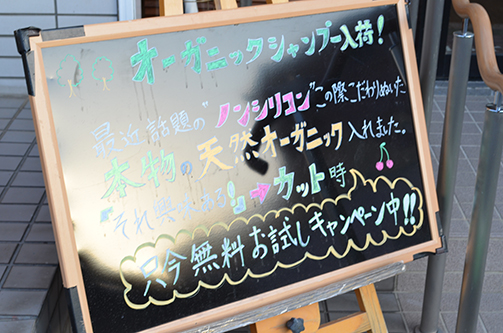 オーガニックシャンプー入荷!
最近話題の"ノンシリコン"この際こだわりぬいた
本物の天然オーガニック入れました。
それ興味ある!→カット時
只今無料お試しキャンペーン中!!